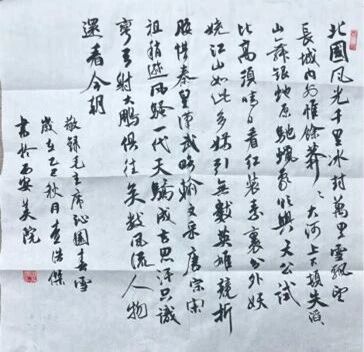 北國風光千里冰封萬里雪飄望
長城內外惟餘莽々大河上下頓失滔
山舞銀蛇原馳蠟象欲與天公試
比高須晴日看紅裝素裹分外妖
嬈江山如此多嬌引無數英雄競折
腰惜秦皇漢武略輸文采唐宗宋
祖稍遜風騷一代天驕成吉思汗只識
彎弓射大鵬俱往矣數風流人物
還看今朝
敬錄毛主席沁園春雪
歲在乙巳秋月
書於西安美院